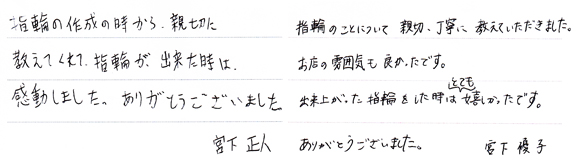 指輪の作成の時から、親切に
教えてくれて、指輪が出来た時は、
感動しました。ありがとうございました
宮下 正人
指輪のことについて 親切、丁寧に 教えていただきました。
お店の雰囲気も良かったです。
出来上がった指輪をした時はとても嬉しかったです。
ありがとうございました。 宮下 優子